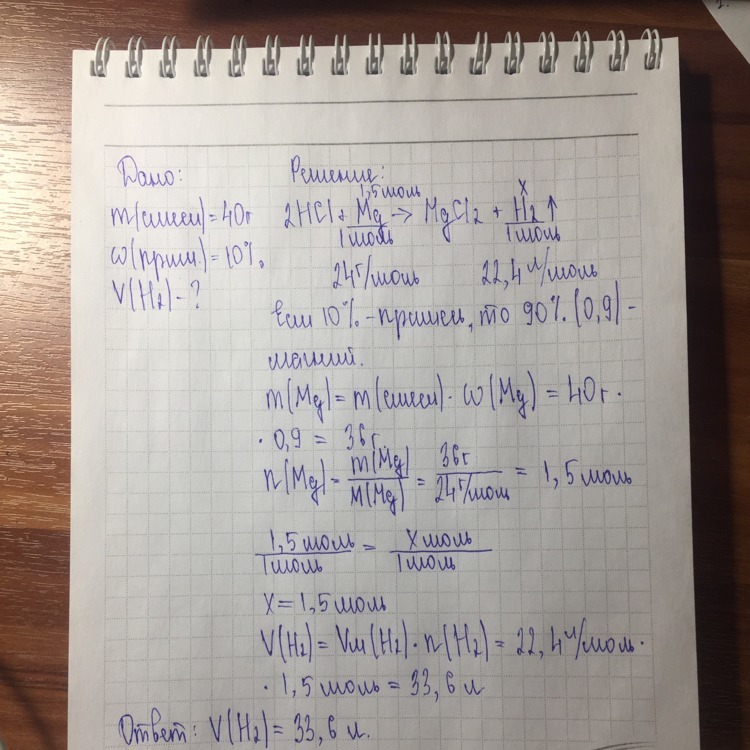 Дано:
m(смеси)=40г
ω(прим.)=10%
V(H2)-?
Решение:
1,5моль x
2HCl + Mg → MgCl2 + H2↑
1моль 1моль
24г/моль 22,4л/моль
Если 10% - примеси, то 90% (0,9) -
магний.
m(Mg) = m(смеси) · ω(Mg) = 40г ·
· 0,9 = 36г.
n(Mg) = m(Mg)/M(Mg) = 36г/24г/моль = 1,5 моль
1,5 моль/1моль = X моль/1моль
X = 1,5 моль
V(H2) = Vм(H2) · n(H2) = 22,4л/моль ·
· 1,5 моль = 33,6 л
Ответ: V(H2) = 33,6 л.